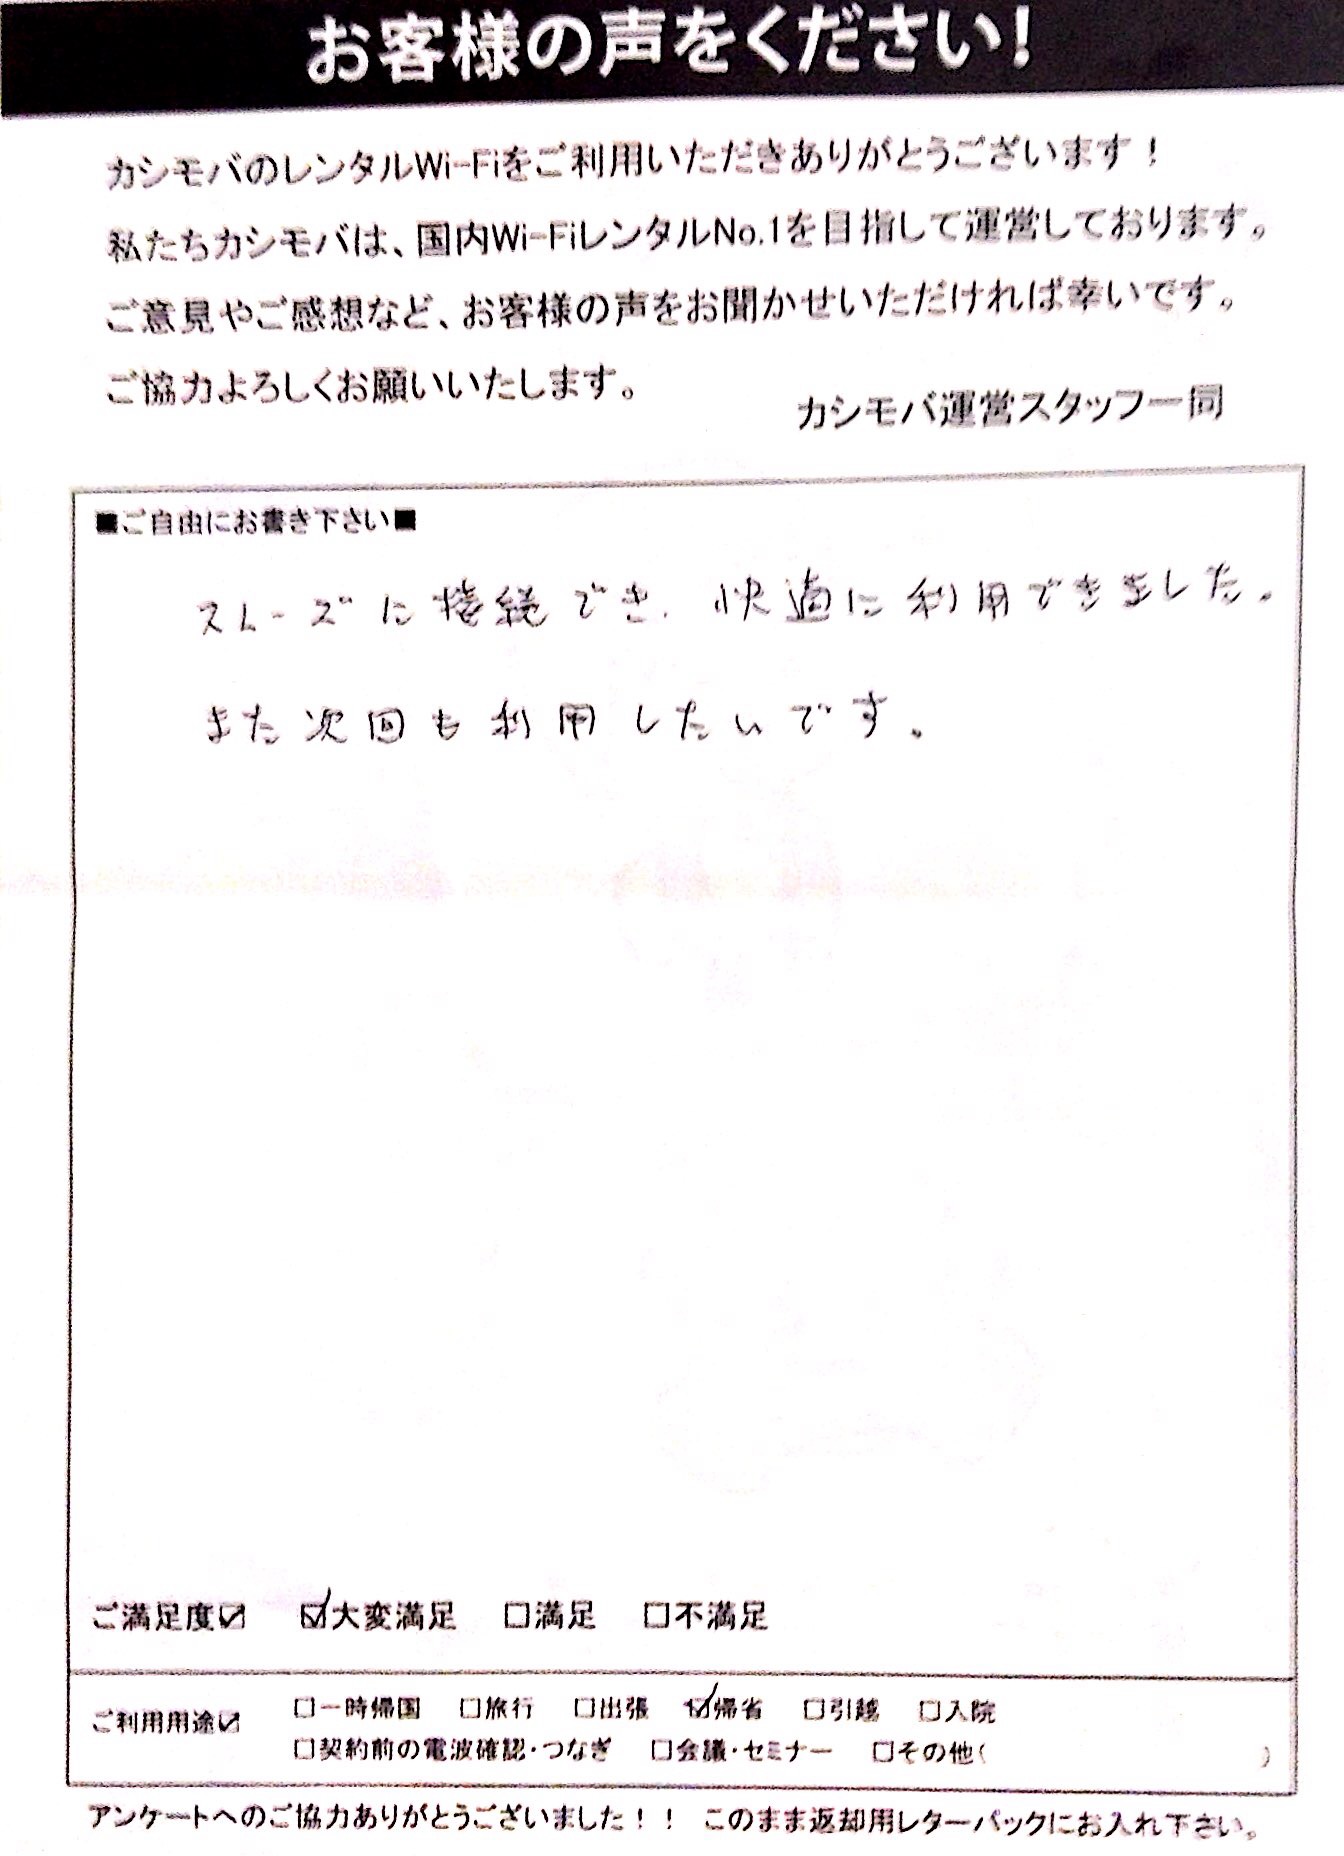 お客様の声をください!
カシモバのレンタルWi-Fiをご利用いただきありがとうございます!
私たちカシモバは、国内Wi-FiレンタルNo.1を目指して運営しております。
ご意見やご感想など、お客様の声をお聞かせいただければ幸いです。
ご協力よろしくお願いいたします。
カシモバ運営スタッフ一同
■ご自由にお書き下さい■
スムーズに接続でき、快適に利用できました。
また次回も利用したいです。
ご満足度☑ ☑大変満足 □満足 □不満足
ご利用用途☑ □一時帰国 □旅行 □出張 ☑帰省 □引越 □入院
□契約前の電波確認・つなぎ □会議・セミナー □その他( )
アンケートへのご協力ありがとうございました!! このまま返却用レターパックにお入れ下さい。